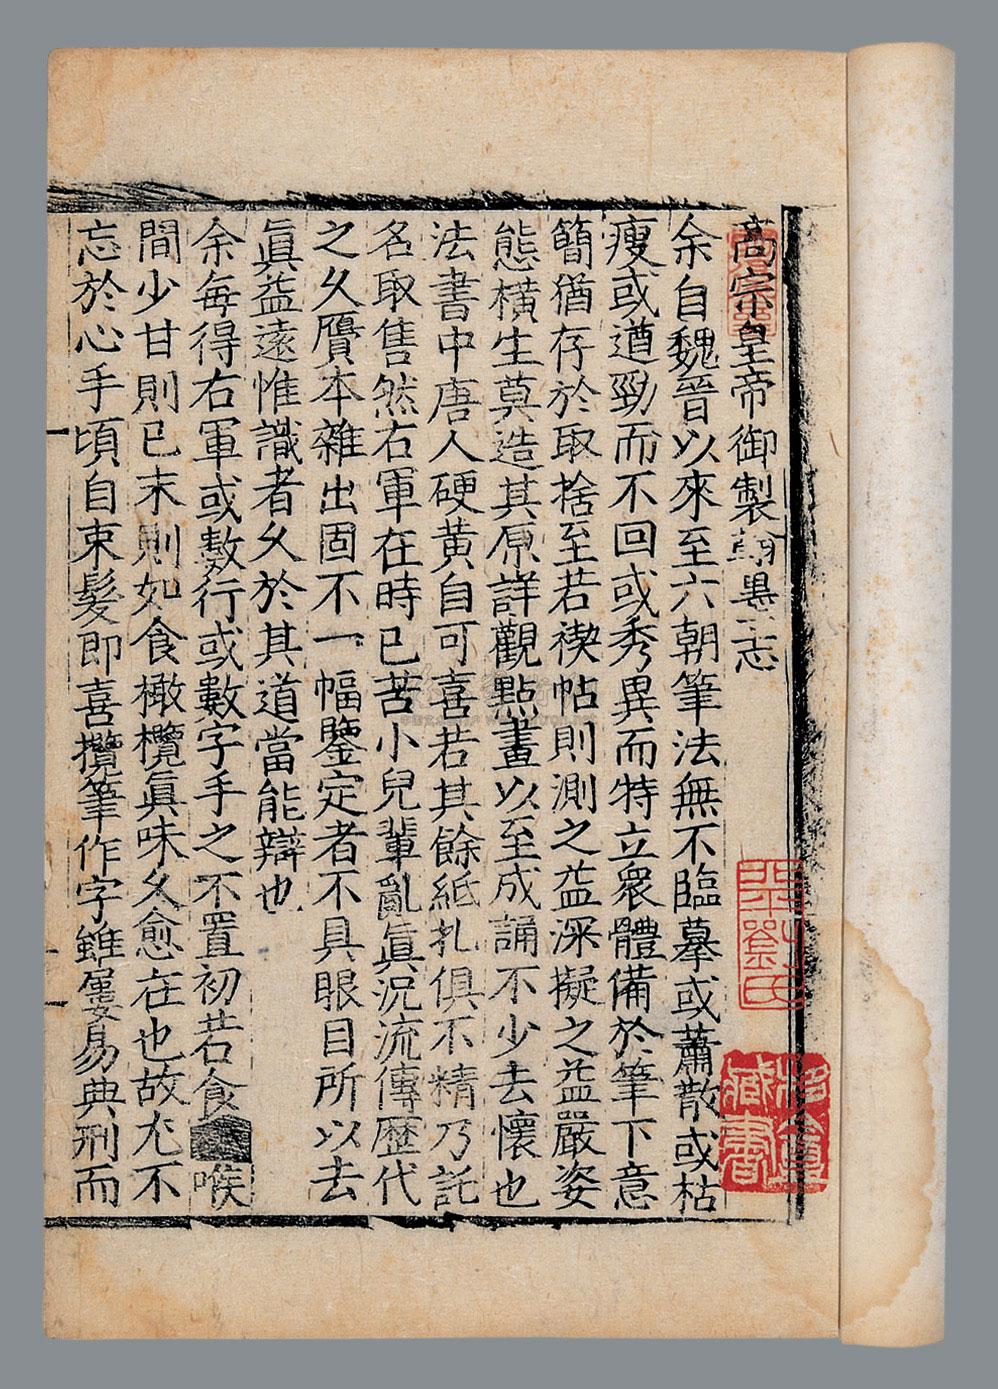 高宗皇帝御製翰墨志
余自魏晉以來至六朝筆法無不臨摹或蕭散或枯
瘦或遒勁而不回或秀異而特立衆體備於筆下意
簡猶存於取捨至若禊帖則測之益深擬之益嚴姿
態橫生莫造其原詳觀點畫以至成誦不少去懷也
法書中唐人硬黄自可喜若其餘紙札俱不精乃託
名取售然右軍在時已苦小兒輩亂真況流傳歷代
之久贋本雜出固不一幅鑒定者不具眼目所以去
眞益遠惟識者久於其道當能辯也
余每得右軍或數行或數字手之不置初若食喉
間少甘則已末則如食橄欖眞味久愈在也故尤不
忘於心手頃自束髮即喜攬筆作字雖屢易典刑而
藏書